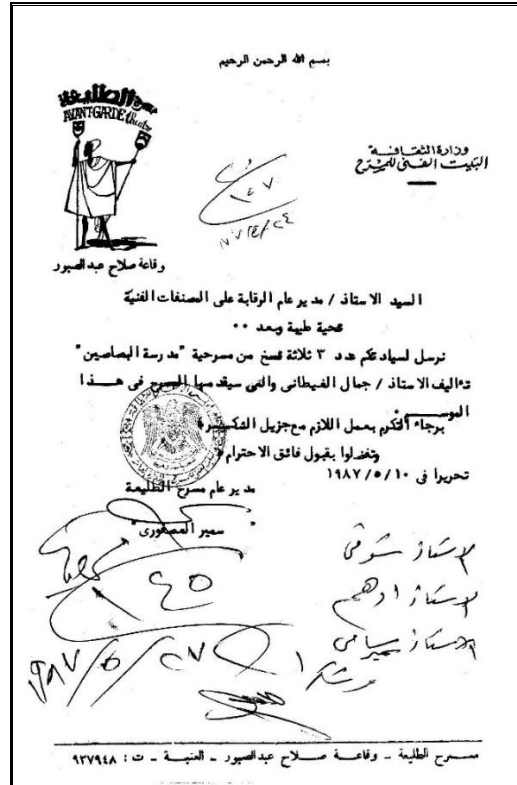 بسم الله الرحمن الرحيم
مسرح الطليعة
AVANT-GARDE theatre
وقاعة صلاح عبدالصبور
وزارة الثقافــة
البيت الفنى للمسرح
١٤٧
السيد الاستاذ / مدير عام الرقابة على المصنفات الفنية
تحية طيبة وبعد ٠٠
نرسل لسيادتكم عدد ٣ ثلاثة نسخ من مسرحية "مدرسة البصاصين"
تأليف الاستاذ / جمال الغيطانى والتى سيقدمها المسرح فى هــــذا
الموسم
برجاء التكرم بعمل اللازم مع جزيل الشكــر
وتفضلوا بقبول فائق الاحترام
تحريرا فى ١٩٨٧/٥/١٠
مدير عام مسرح الطليعة
" سمير العصفورى "
الاستاذ شوقى
الاستاذ ادهم
الاستاذ سامى
٤٥
١٩٨٧/٥/٢٧
مســرح الطليعة ـ وقاعــة صــلاح عبدالصبور ـ العتبــة ـ ت : ٩٣٧٩٤٨